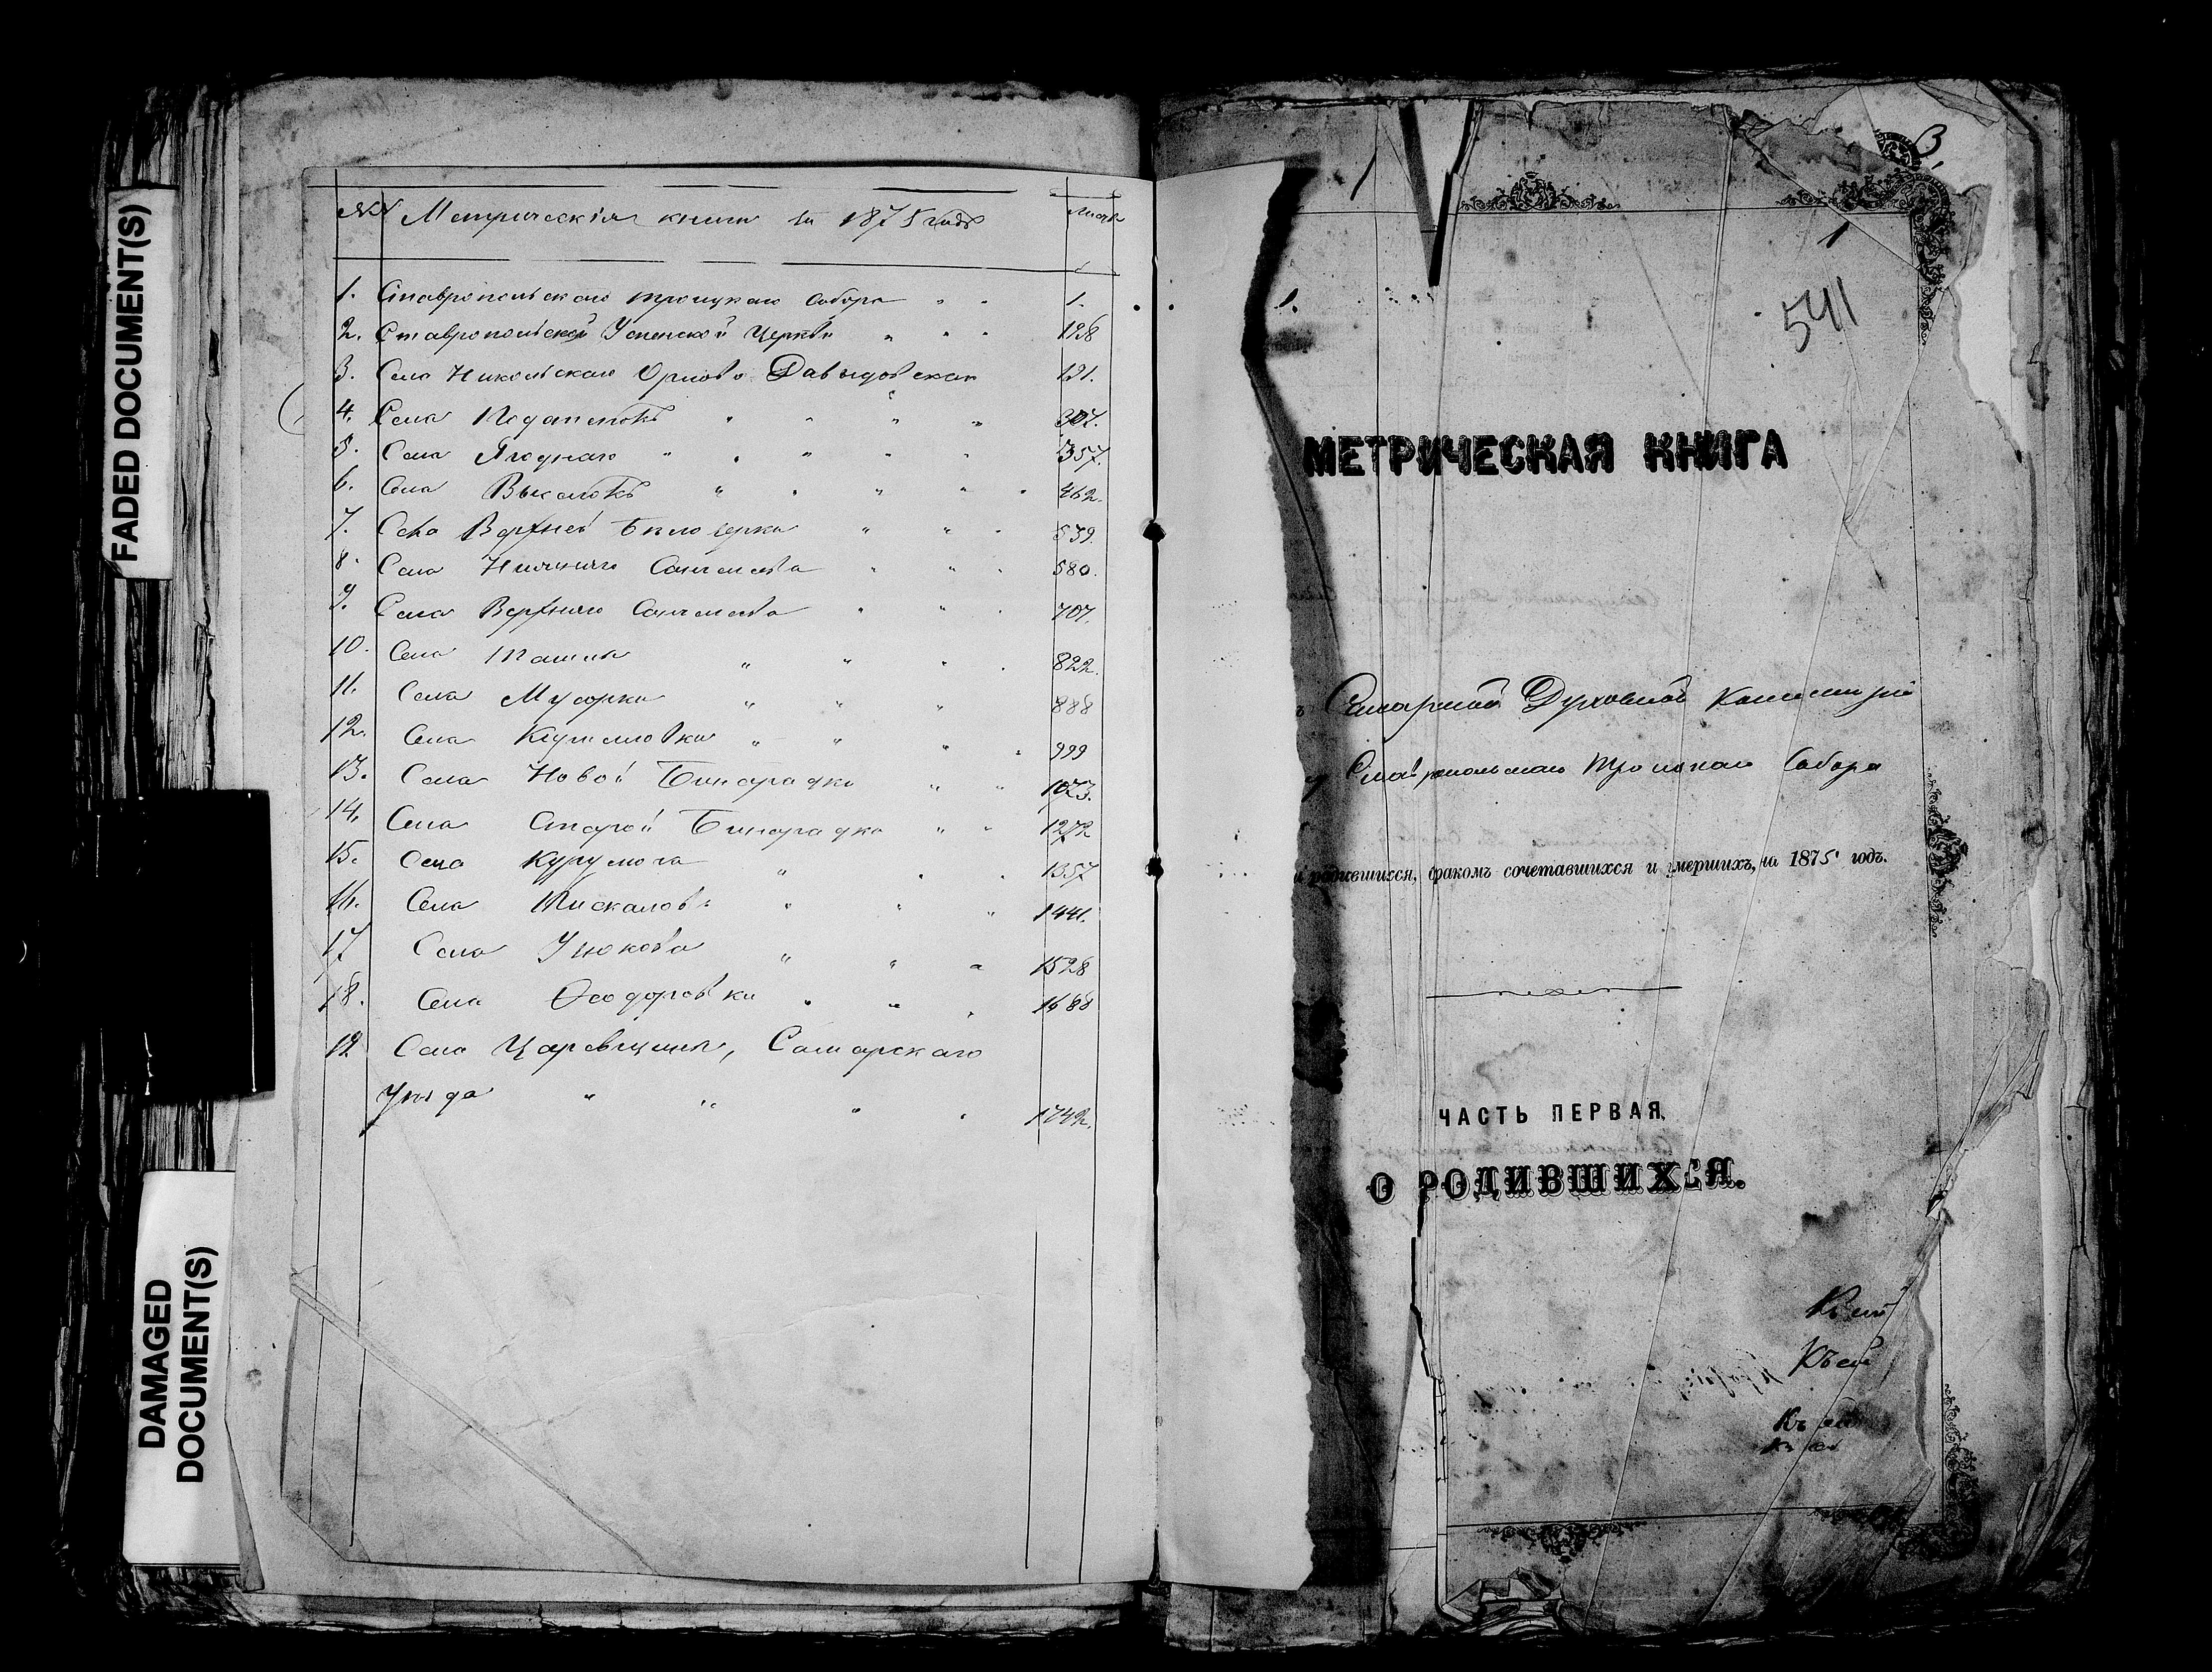 FADED DOCUMENT(S)
DAMAGED
DOCUMENT(S)
№№ Метрическія книги за 1875 годъ листъ
1. Ставропольскаго Троицкаго Собора " " 1.
2. Ставропольской Успенской Церкви " " " 128
3. Села Никольскаго Орлово Давыдовскаго 191.
4. Села Подстепокъ " " " " 307.
5. Села Ягоднаго " " " " " 357.
6. Села Выселокъ " " " " " 462.
7. Села Верхней Бѣлозерки " " " 539.
8. Села Нижняго Санчелеева " " " 580.
9. Села Верхняго Санчелеева " " " 707.
10. Села Ташлы " " " " 822.
11. Села Мусорки " " " 888
12. Села Кирилловки " " " " 999
13. Села Новой Бинарадки " " 1073.
14. Села Старой Бинарадки " " 1272
15. Села Курумоча " " " 1357
16. Села Пискалов " " " 1441.
17 Села Узюкова " " " 1528
18. Села Ѳеодоровки " " " 1688
19. Села Царевщины, Самарскаго
Уѣзда " " " " 1742.
3.
1
1
541
1.
МЕТРИЧЕСКАЯ КНИГА
Самарской Духовной Консисторіи
Ставропольскаго Троицкаго Собора
родившихся, бракомъ сочетавшихся и умершихъ, на 1875 годъ.
ЧАСТЬ ПЕРВАЯ
О РОДИВШИХСЯ.
Къ ей
Къ ей
Къ ей